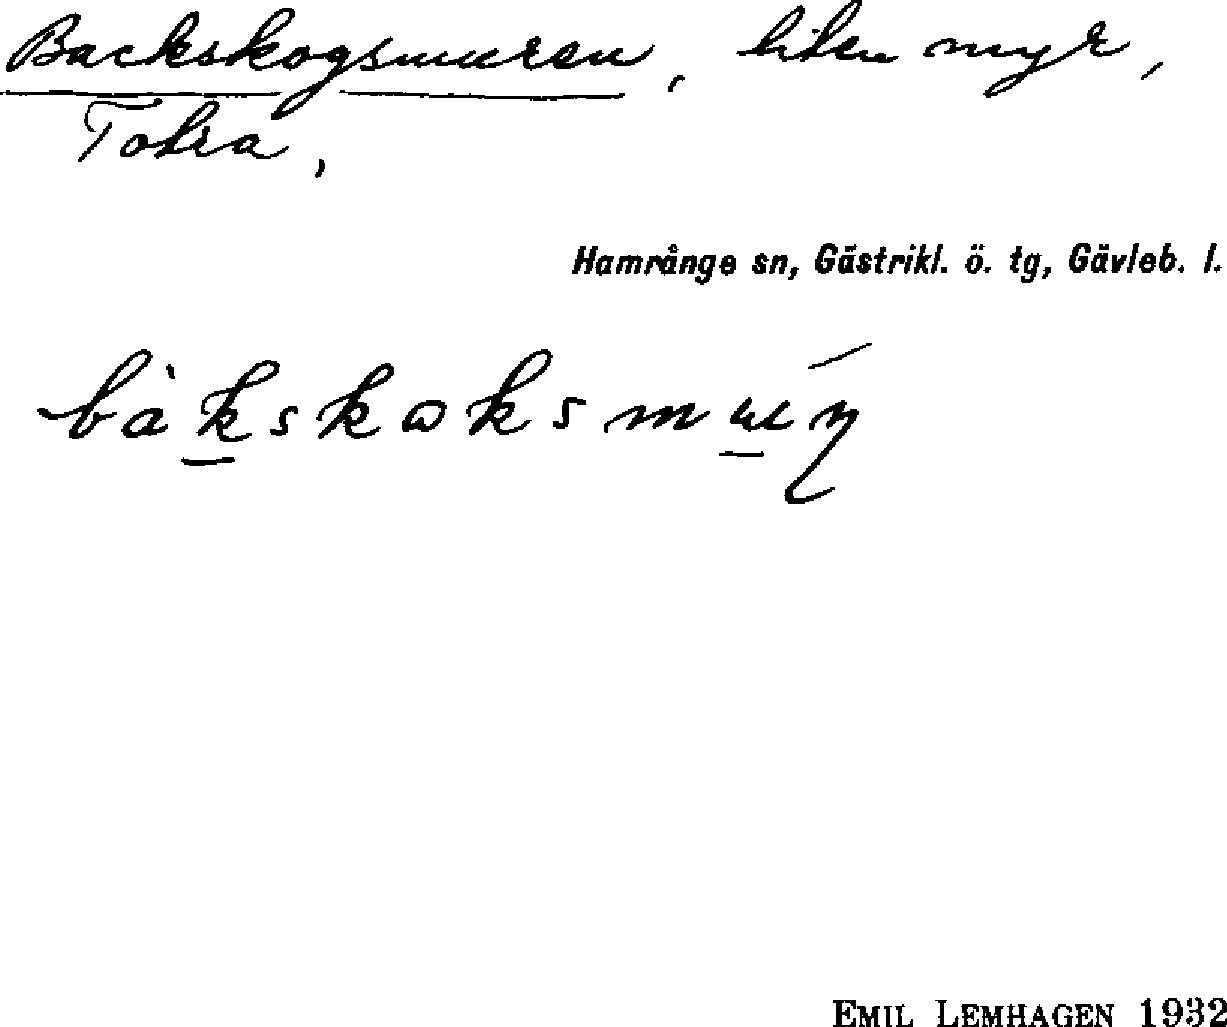 Backskogsmuren, liten myr,
Tolra,
Hamrånge sn, Gästrikl. ö. tg, Gävleb. l.
EMIL LEMHAGEN 1932